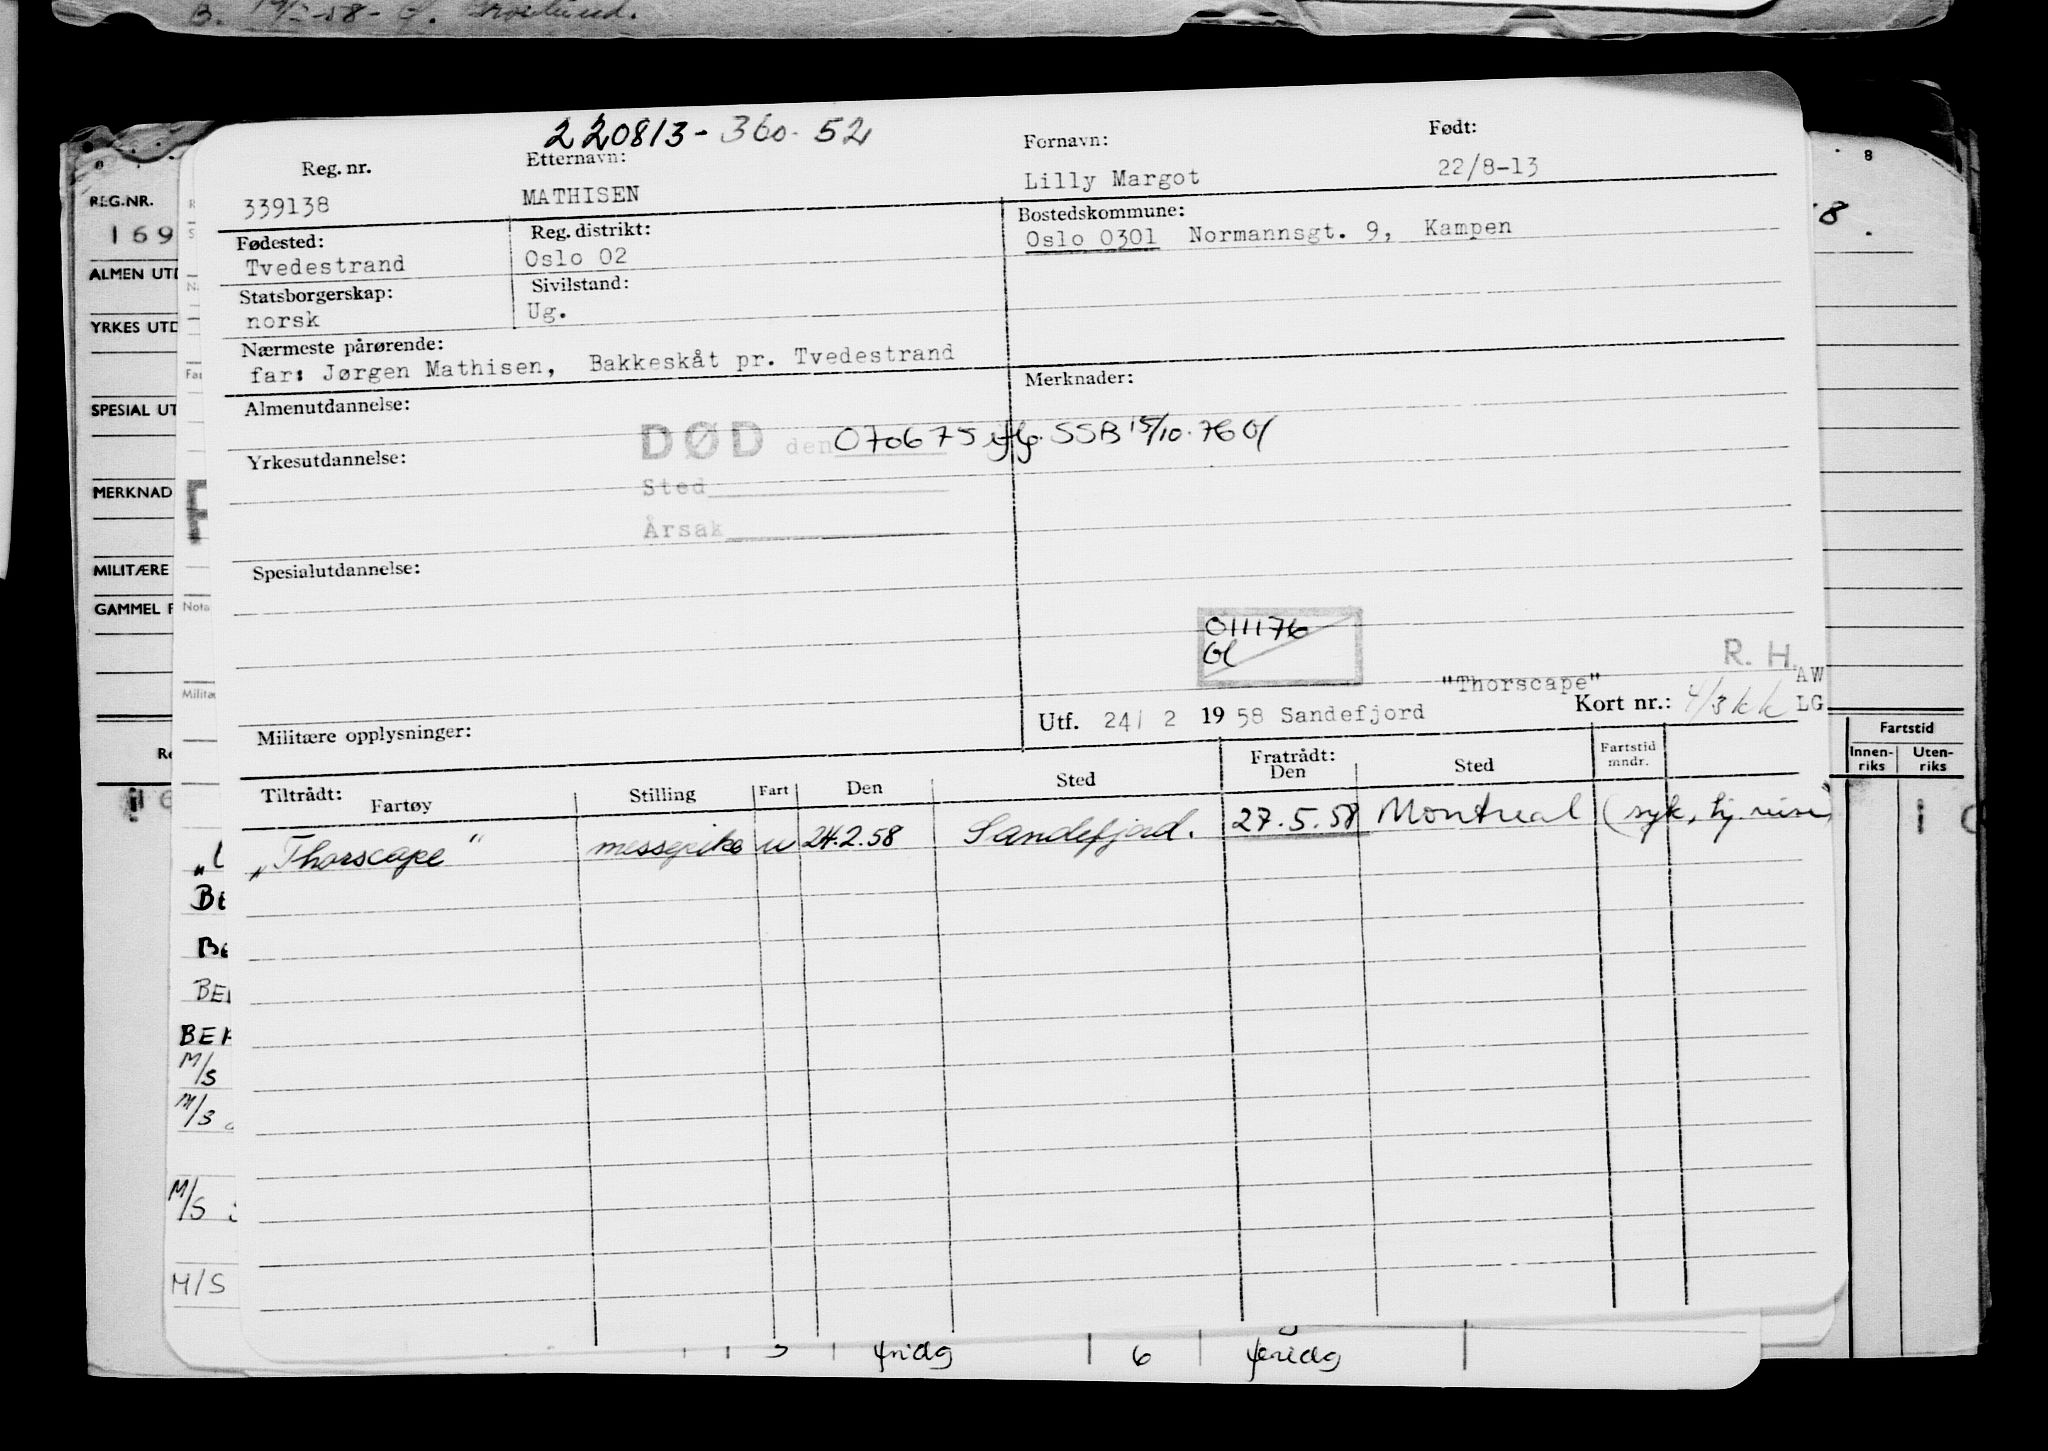 B. 19/2-58-
220813-360-52
Reg. nr.
Etternavn:
Fornavn:
Født:
339138
MATHISEN
Lilly Margot
22/8-13
Fødested:
Reg. distrikt:
Bostedskommune:
Tvedestrand
Oslo 02
Oslo 0301 Normannsgt. 9, Kampen
Statsborgerskap:
Sivilstand:
norsk
Ug.
Nærmeste pårørende:
far: Jørgen Mathisen, Bakkeskåt pr. Tvedestrand
Almenutdannelse:
Merknader:
DØD den 070675 iflg. SSB 15/10-76 Gl
Yrkesutdannelse:
Sted
Årsak
Spesialutdannelse:
011176
Gl
R. H.
AW
"Thorscape"
Militære opplysninger:
Utf. 24/ 2 1958 Sandefjord
Kort nr.: 4/3 kk LG
Tiltrådt:
Fartøy
Stilling
Fart
Den
Sted
Fratrådt:
Den
Sted
Fartstid
mndr.
„Thorscape" messepike u 24.2.58 Sandefjord. 27.5.58 Montreal (syk, hj. reise)
REG.NR.
169
ALMEN UTD
YRKES UTD
SPESIAL UT
MERKNAD
MILITÆRE
GAMMEL F
Nota
Militæ
Far
8
8.
Fartstid
Innen-
riks
Uten-
riks
Be
BER
BER
M/S
M/S
M/S
M/S
6